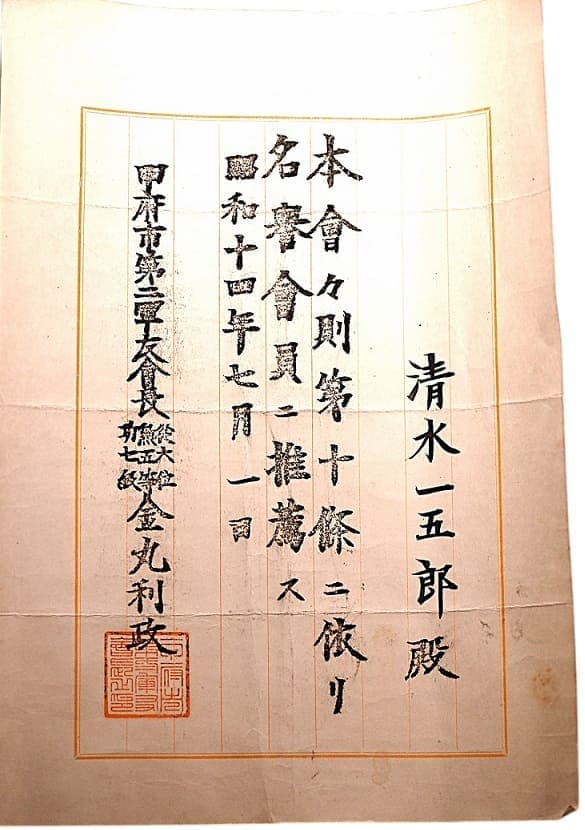 清水一五郎殿
本會々則第十條ニ依リ
名譽會員ニ推薦ス
昭和十四年七月一日
甲府市第二軍友會長
從六位
勲五等
功七級
金丸利政